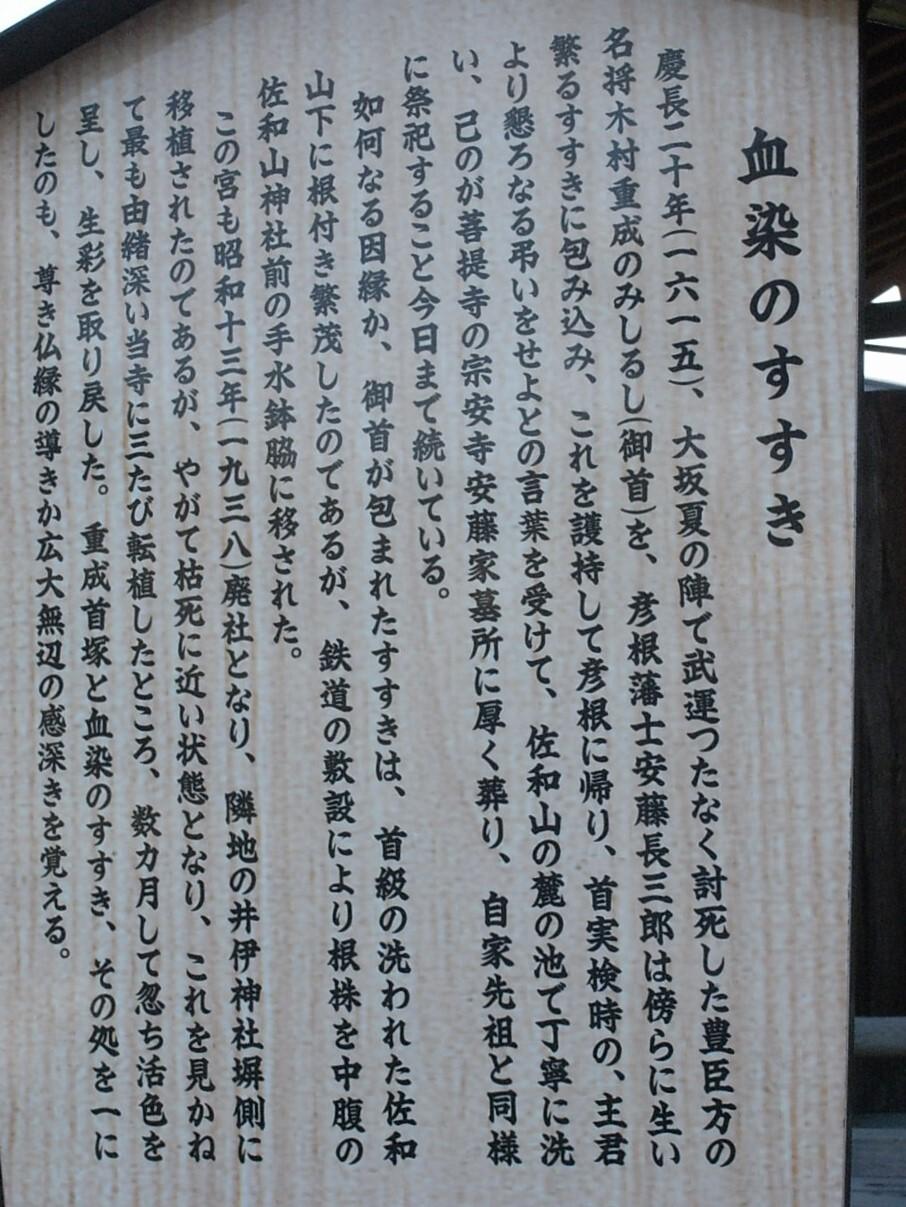 血染のすすき
慶長二十年(一六一五)、大坂夏の陣で武運つたなく討死した豊臣方の
名将木村重成のみしるし(御首)を、彦根藩士安藤長三郎は傍らに生い
繁るすすきに包み込み、これを護持して彦根に帰り、首実検時の、主君
より懇ろなる弔いをせよとの言葉を受けて、佐和山の麓の池で丁寧に洗
い、己のが菩提寺の宗安寺安藤家墓所に厚く葬り、自家先祖と同様
に祭祀すること今日まで続いている。
如何なる因縁か、御首が包まれたすすきは、首級の洗われた佐和
山下に根付き繁茂したのであるが、鉄道の敷設により根株を中腹の
佐和山神社前の手水鉢脇に移された。
この宮も昭和十三年(一九三八)廃社となり、隣地の井伊神社塀側に
移植されたのてあるが、やがて枯死に近い状態となり、これを見かね
て最も由緒深い当寺に三たび転植したところ、数カ月して忽ち活色を
呈し、生彩を取り戻した。重成首塚と血染のすすき、その処を一に
したのも、尊き仏縁の導きか広大無辺の感深きを覚える。